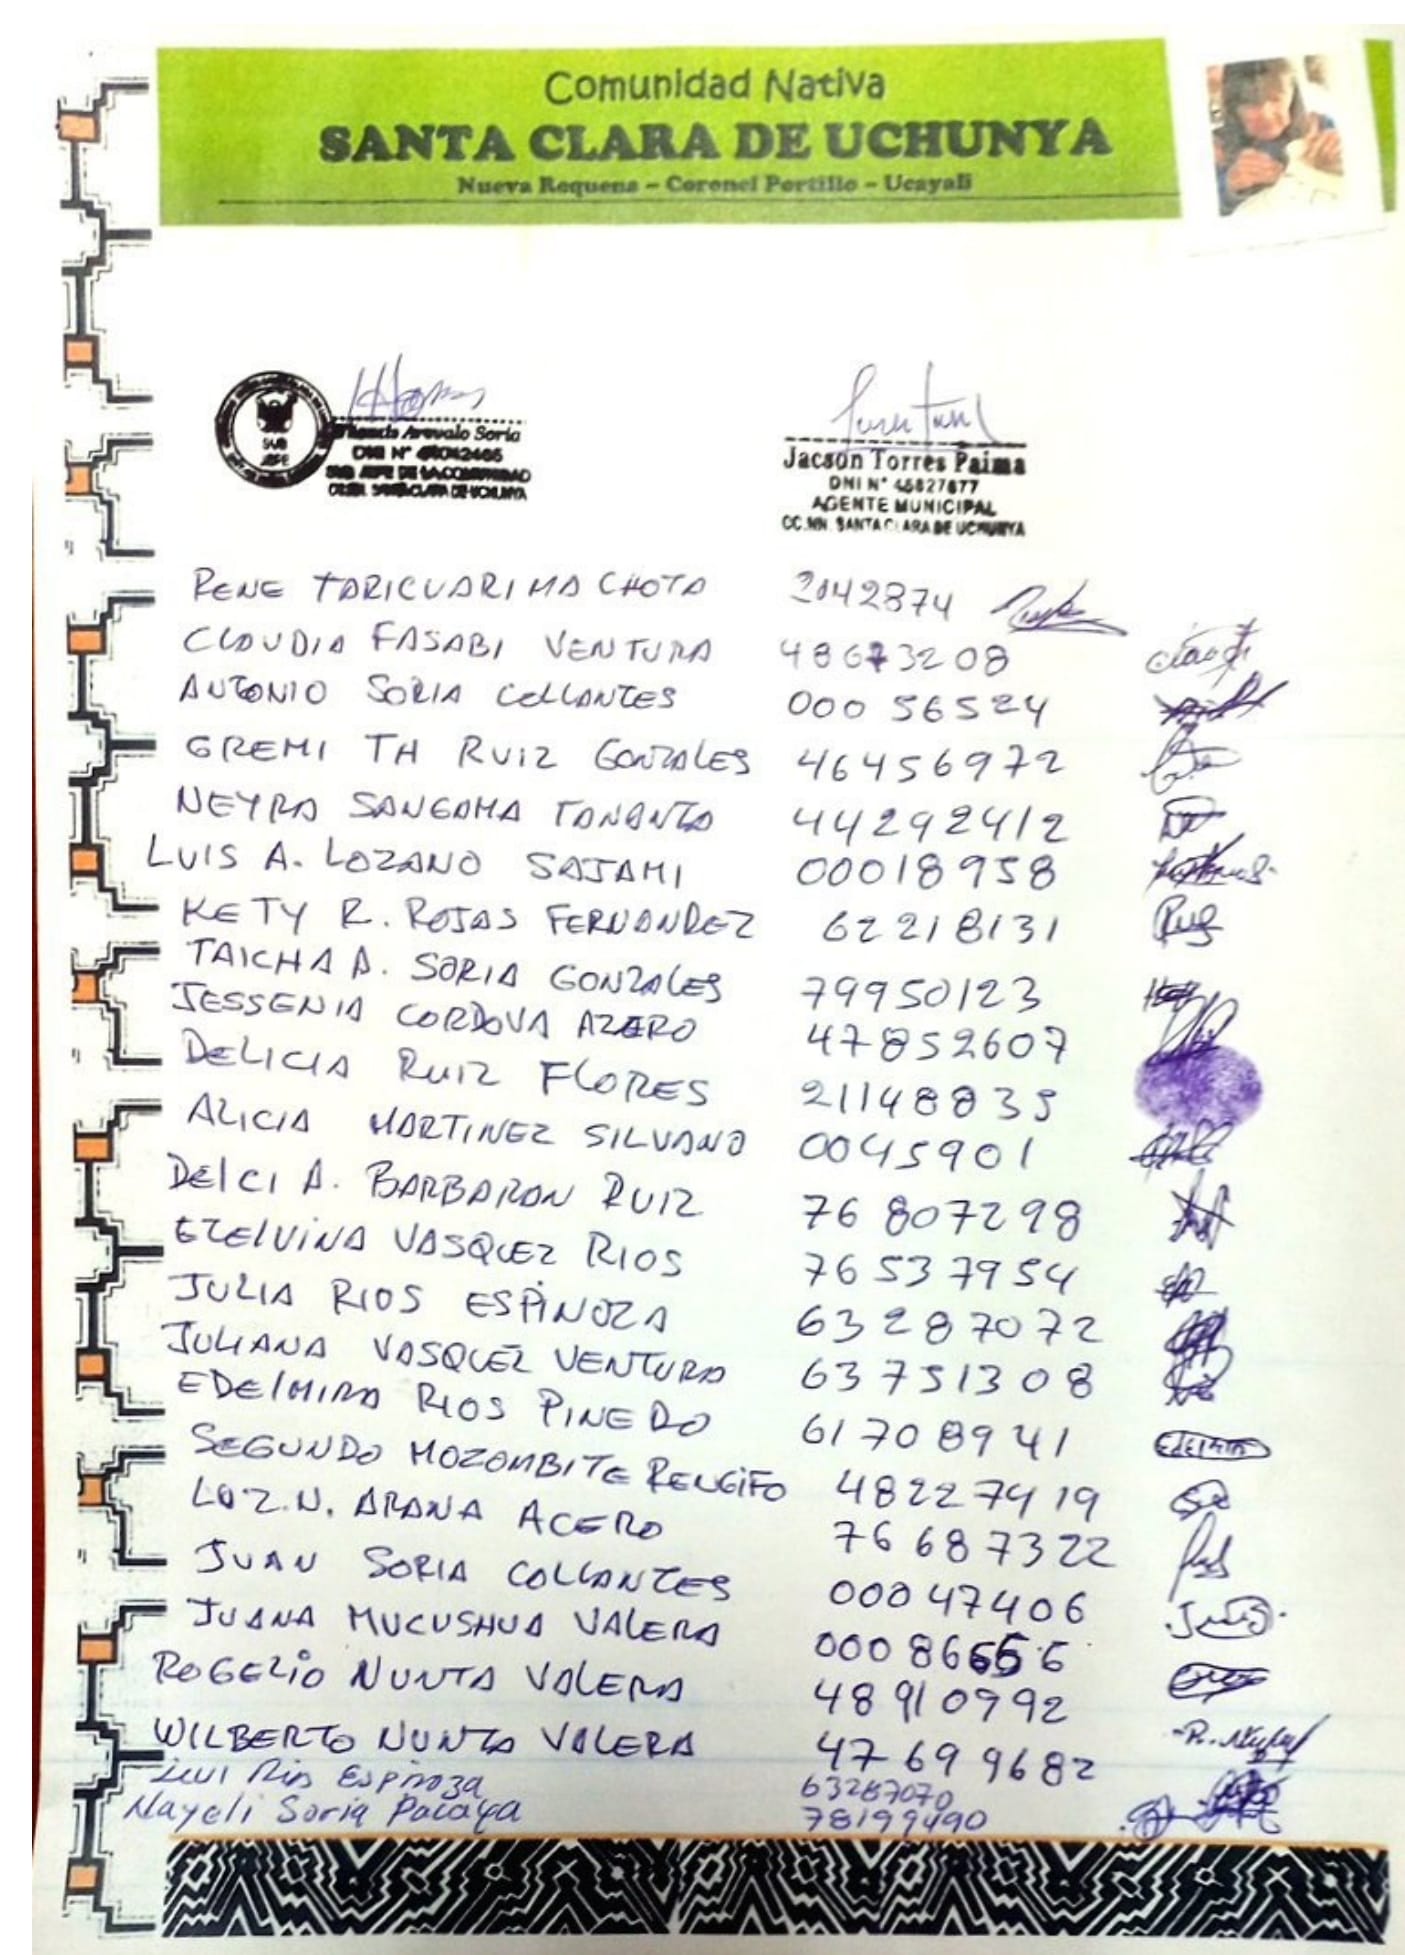 Comunidad Nativa
SANTA CLARA DE UCHUNYA
Nueva Requena – Coronel Portillo – Ucayali
SUB
JEFE
Arevalo Soria
DNI N°
SUB JEFE DE LA COMUNIDAD
SANTA CLARA DE UCHUNYA
Jacson Torres Paima
DNI N° 45827677
AGENTE MUNICIPAL
CC.NN. SANTA CLARA DE UCHUNYA
RENE TARICUARIMA CHOTA 2142874
CLAUDIA FASABI VENTURA 48673208
ANTONIO SORIA COLLANTES 000 56524
GREMI TH RUIZ GONZALES 46456972
NEYRA SANGAMA TANANTA 44292412
LUIS A. LOZANO SAJAMI 00018958
KETY R. ROJAS FERNANDEZ 62218131
TAICHA A. SORIA GONZALES 79950123
JESSENIA CORDOVA AZERO 47852607
DELICIA RUIZ FLORES 21148835
ALICIA MARTINEZ SILVANO 0045901
DElCI A. BARBARAN RUIZ 76 807298
EZElVINA VASQUEZ RIOS 76537954
JULIA RIOS ESPINOZA 63287072
JULIANA VASQUEZ VENTURA 63751308
EDElMIRA RIOS PINEDO 61708941
SEGUNDO MOZOMBITE RENGIFO 48227419
LUZ.N. ARANA ACERO 76687322
JUAN SORIA COLLANTES 00047406
JUANA MUCUSHUA VALERA 000 86656
ROGELIO NUNTA VALERA 48910992
WILBERTO NUNTA VALERA 47699682
Rios Espinoza 63287070
Nayeli Soria Pacaya 78199490